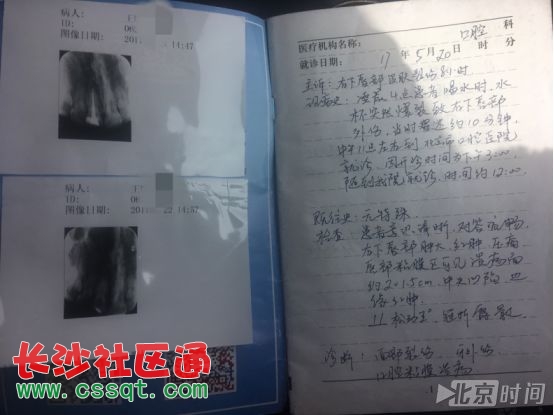 病人:
王
ID:
08
图像日期:
201
14:47
病人:
ID:
08
图像日期:
201
22 14:57
医疗机构名称:
口腔
科
就诊日期:
17 年 5 月 20 日 时 分
主诉: 右下唇部
8小时
现病史: 凌晨4点患者喝水时, 水
杯突然爆裂致右下唇部
外伤, 当时昏迷约10分钟,
中午11点左右到北京市口腔医院
就诊, 因开诊时间为下午3:00
随到我院就诊, 时间约12:00
既往史: 无特殊
检查: 患者意识清晰, 对答流畅
右下唇部肿大, 红肿, 压痛
唇部粘膜区可见溃疡面
约2×1.5cm 中央凹陷 边
缘红肿.
11 松动I° 冠折
诊断:
面部裂伤
牙外伤
口腔粘膜溃疡
1
长沙社区通
www.cssqt.com
北京时间